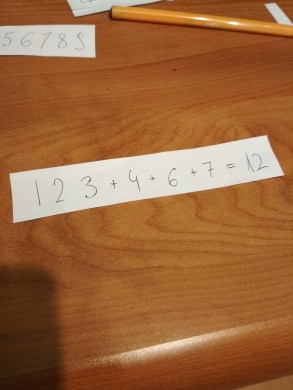 5 6 7 8 9
1 2 3 + 4 + 6 + 7 = 12